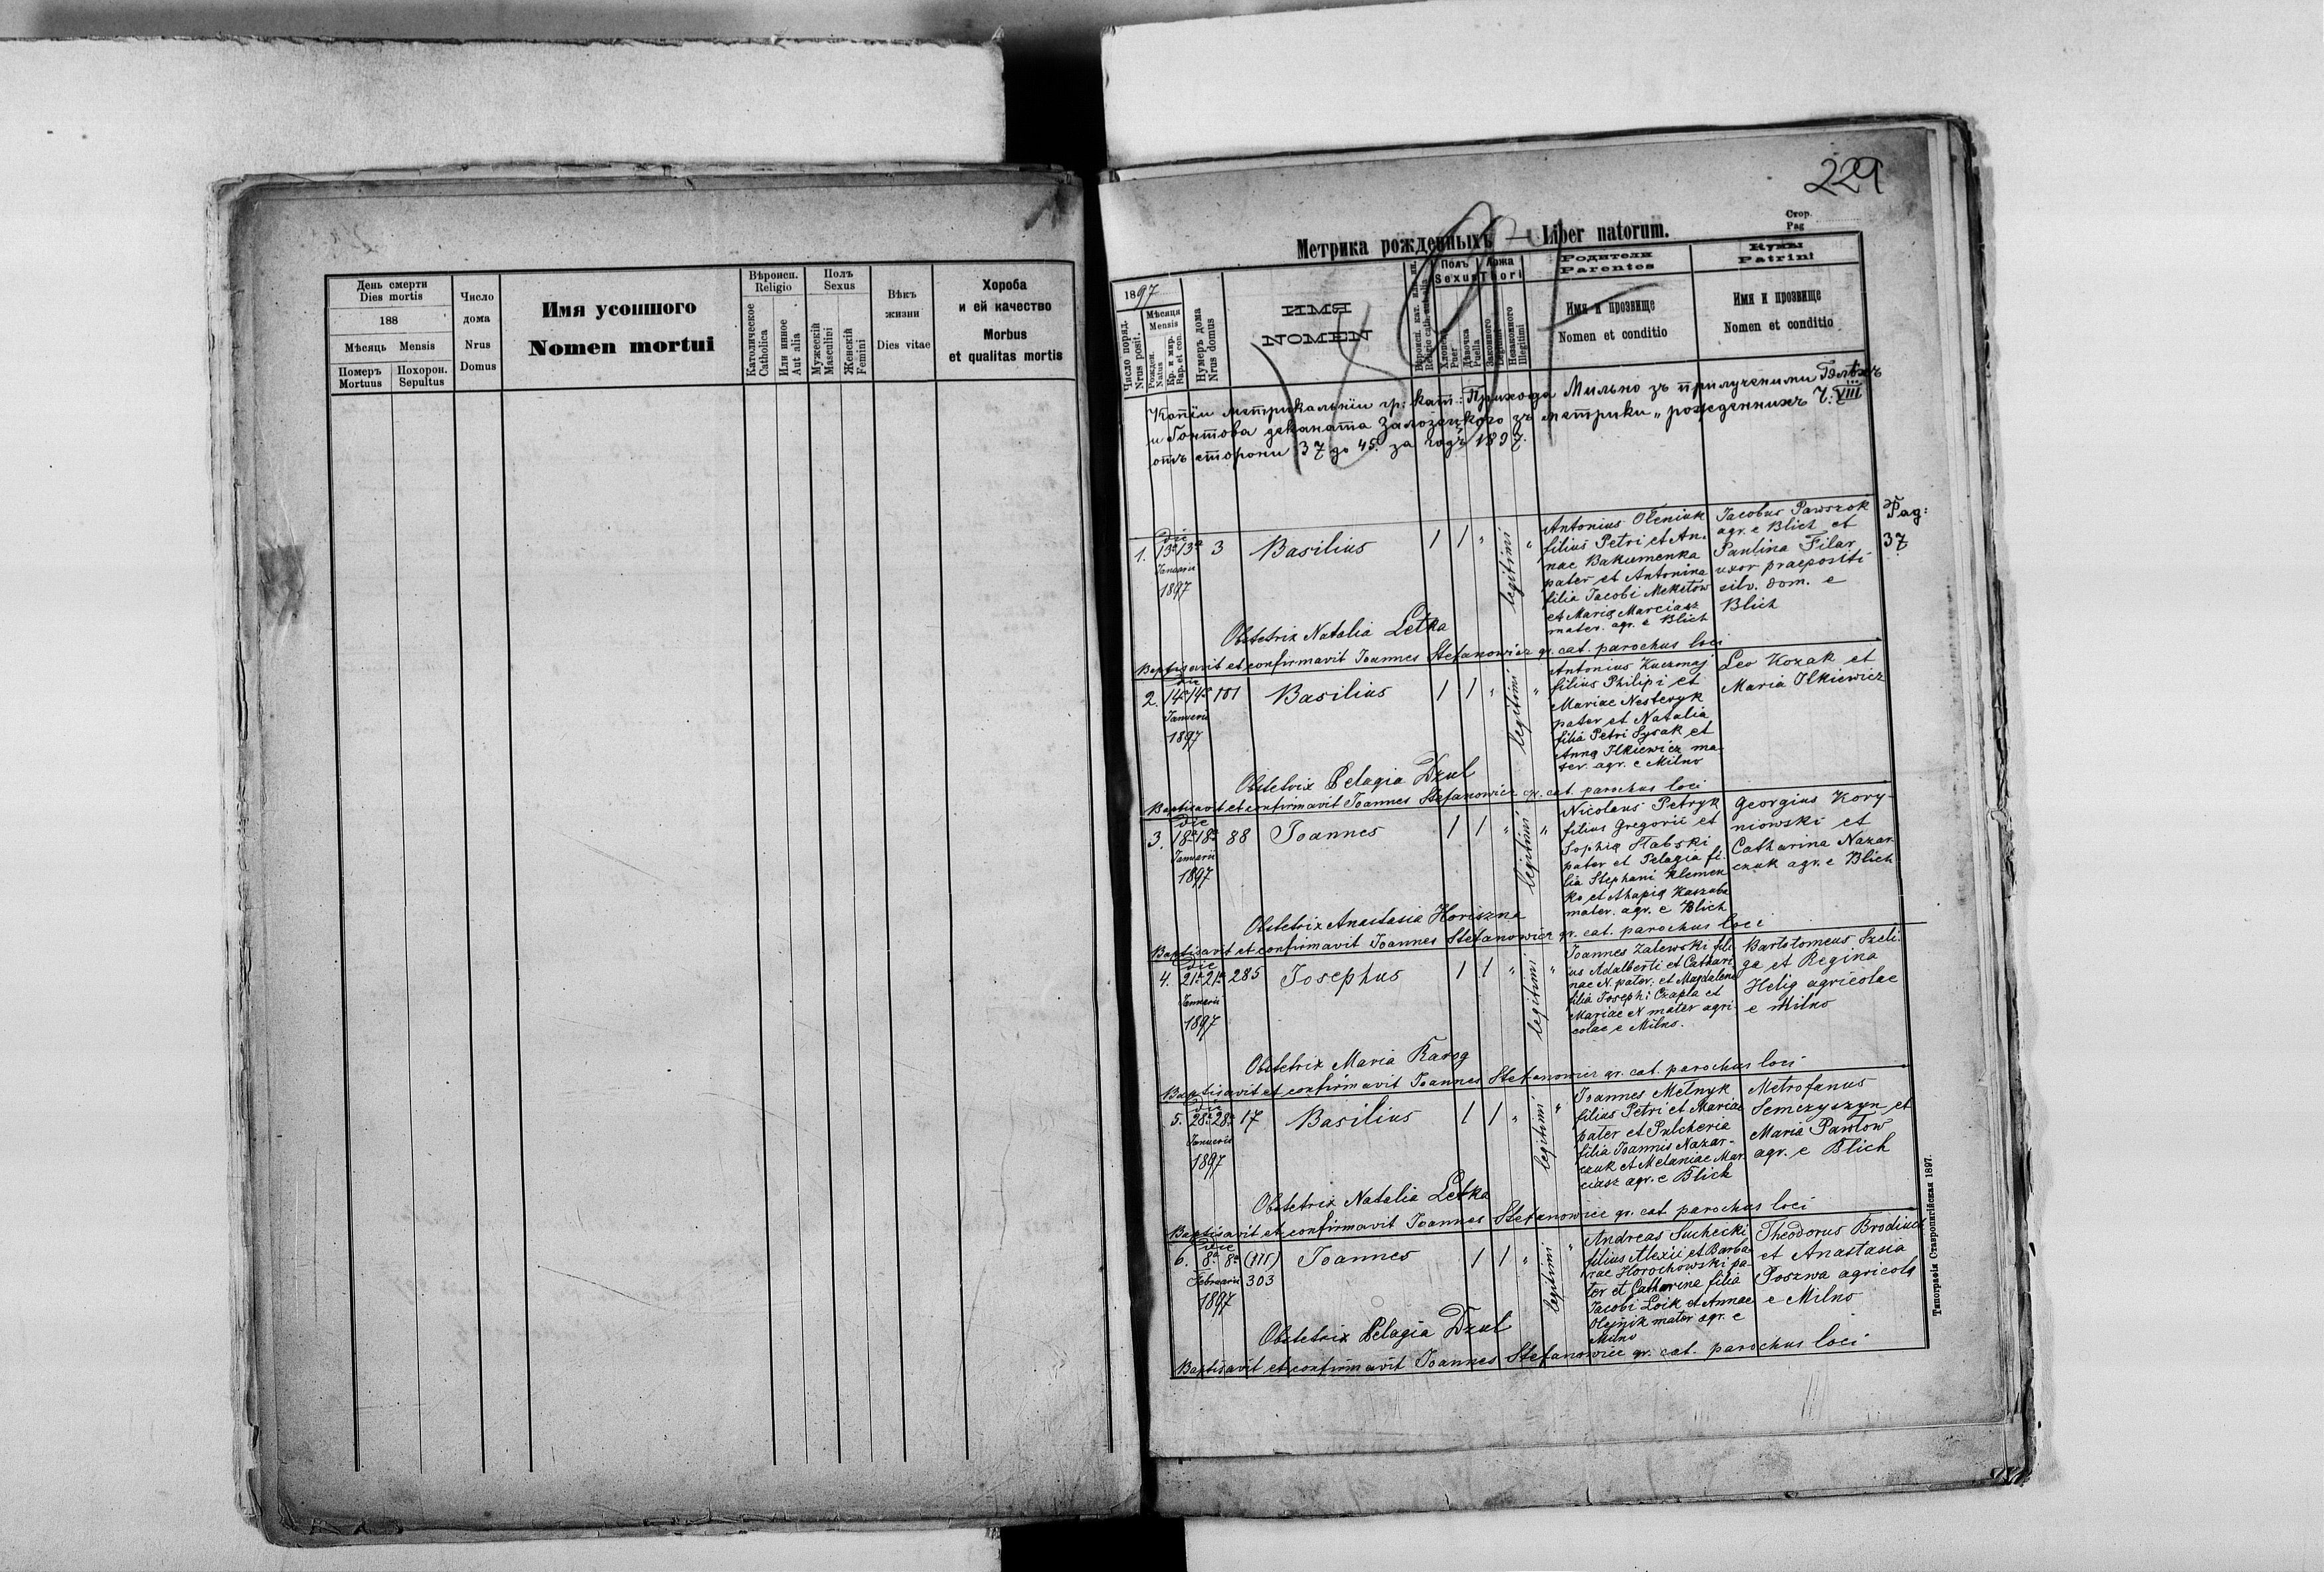 День смерти
Dies mortis
188
Мѣсяць Mensis
Померъ
Mortuus
Похорон.
Sepultus
Число
дома
Nrus
Domus
Имя усопшого
Nomen mortui
Вѣроисп.
Religio
Католическое
Catholica
Или инное
Aut alia
Полъ
Sexus
Мужескій
Masculini
Женскій
Femini
Вѣкъ
жизни
Dies vitae
Хороба
и ей качество
Morbus
et qualitas mortis
229
Стор.
Pag
Метрика рожденныхъ — Liber natorum.
1897
Число поряд.
Nrus posit.
Мѣсяця
Mensis
Рожден.
Natus
Кр. и мир.
Bap. et con.
Нумеръ дома
Nrus domus
ИМЯ
NOMEN
Полъ
Sexus
Хлопецъ
Puer
Дѣвочка
Puella
Ложа
Thori
Законного
Legitimi
Незаконного
Illegitimi
Родители
Parentes
Имя и прозвище
Nomen et conditio
Кумы
Patrini
Имя и прозвище
Nomen et conditio
Копіи метрикальніи гр: кат: Прихода Мильно зъ прилученими Блѣхъ
и Гонтова деканата Залозецкого зъ метрики „рожденнихъ Ч: VIII
отъ сторони 37 до 45. за годъ 1897.
Pag:
37
1. die 13a 13a 3 Basilius 1 1 " legitimi "
Januarii
1897
Antonius Oleniuk
filius Petri et An-
nae Bakumenka
pater et Antonina
filia Jacobi Mekelow
et Maria Marciasz
mater. agr. e Blich
Jacobus Pawszok
agr. e Blich et
Paulina Filar
uxor praepositi
silv. dom. e
Blich
Obstetrix Natalia Letka
Baptisavit et confirmavit Joannes Stefanowicz gr. cat. parochus loci
2. die 14a 14a 101 Basilius 1 1 " legitimi "
Januarii
1897
Antonius Kuczmaj
filius Philipi et
Mariae Nesteryk
pater et Natalia
filia Petri Sysak et
Anna Ilkiewicz ma-
ter. agr. e Milno
Leo Kozak et
Maria Ilkiewicz
Obstetrix Pelagia Dzul
Baptisavit et confirmavit Joannes Stefanowicz gr. cat. parochus loci
3. die 18a 18a 88 Joannes 1 1 " legitimi "
Januarii
1897
Nicolaus Petryk
filius Gregorii et
Sophia Habski
pater et Pelagia fi-
lia Stephani Klemen
ko et Ahapia Kaszuba
mater. agr. e Blich
Georgius Kory-
niowski et
Catharina Nazar-
czuk agr. e Blich
Obstetrix Anastasia Horiszna
Baptisavit et confirmavit Joannes Stefanowicz gr. cat. parochus loci
4. die 21a 21a 285 Josephus 1 1 " legitimi "
Januarii
1897
Joannes Zalewski fili-
us Adalberti et Cathari
nae N. pater. et Magdalena
filia Josephi Czapla et
Mariae N mater agri-
colae e Milno.
Bartolomeus Szeli-
ga et Regina
Helig agricolae
e Milno
Obstetrix Maria Karog
Baptisavit et confirmavit Joannes Stefanowicz gr. cat. parochus loci
5. die 28a 28a 17 Basilius 1 1 " legitimi "
Januarii
1897
Joannes Melnyk
filius Petri et Mariae
pater et Pulcheria
filia Joannis Nazar-
czuk et Melaniae Mar
ciasz agr. e Blich
Metrofanus
Semczyszyn et
Maria Pawlow
agr. e Blich
Obstetrix Natalia Letka
Baptisavit et confirmavit Joannes Stefanowicz gr. cat. parochus loci
6. die 8a 8a (111) Joannes 1 1 " legitimi "
Februarii 303
1897
Andreas Suchecki
filius Alexii et Barba
rae Horochowski pa-
ter et Catharina filia
Jacobi Loik et Annae
Olejnik mater agr. e
Milno
Theodorus Brodiuch
et Anastasia
Poszwa agricola
e Milno
Obstetrix Pelagia Dzul
Baptisavit et confirmavit Joannes Stefanowicz gr. cat. parochus loci
Типографія Ставропигійская 1897.